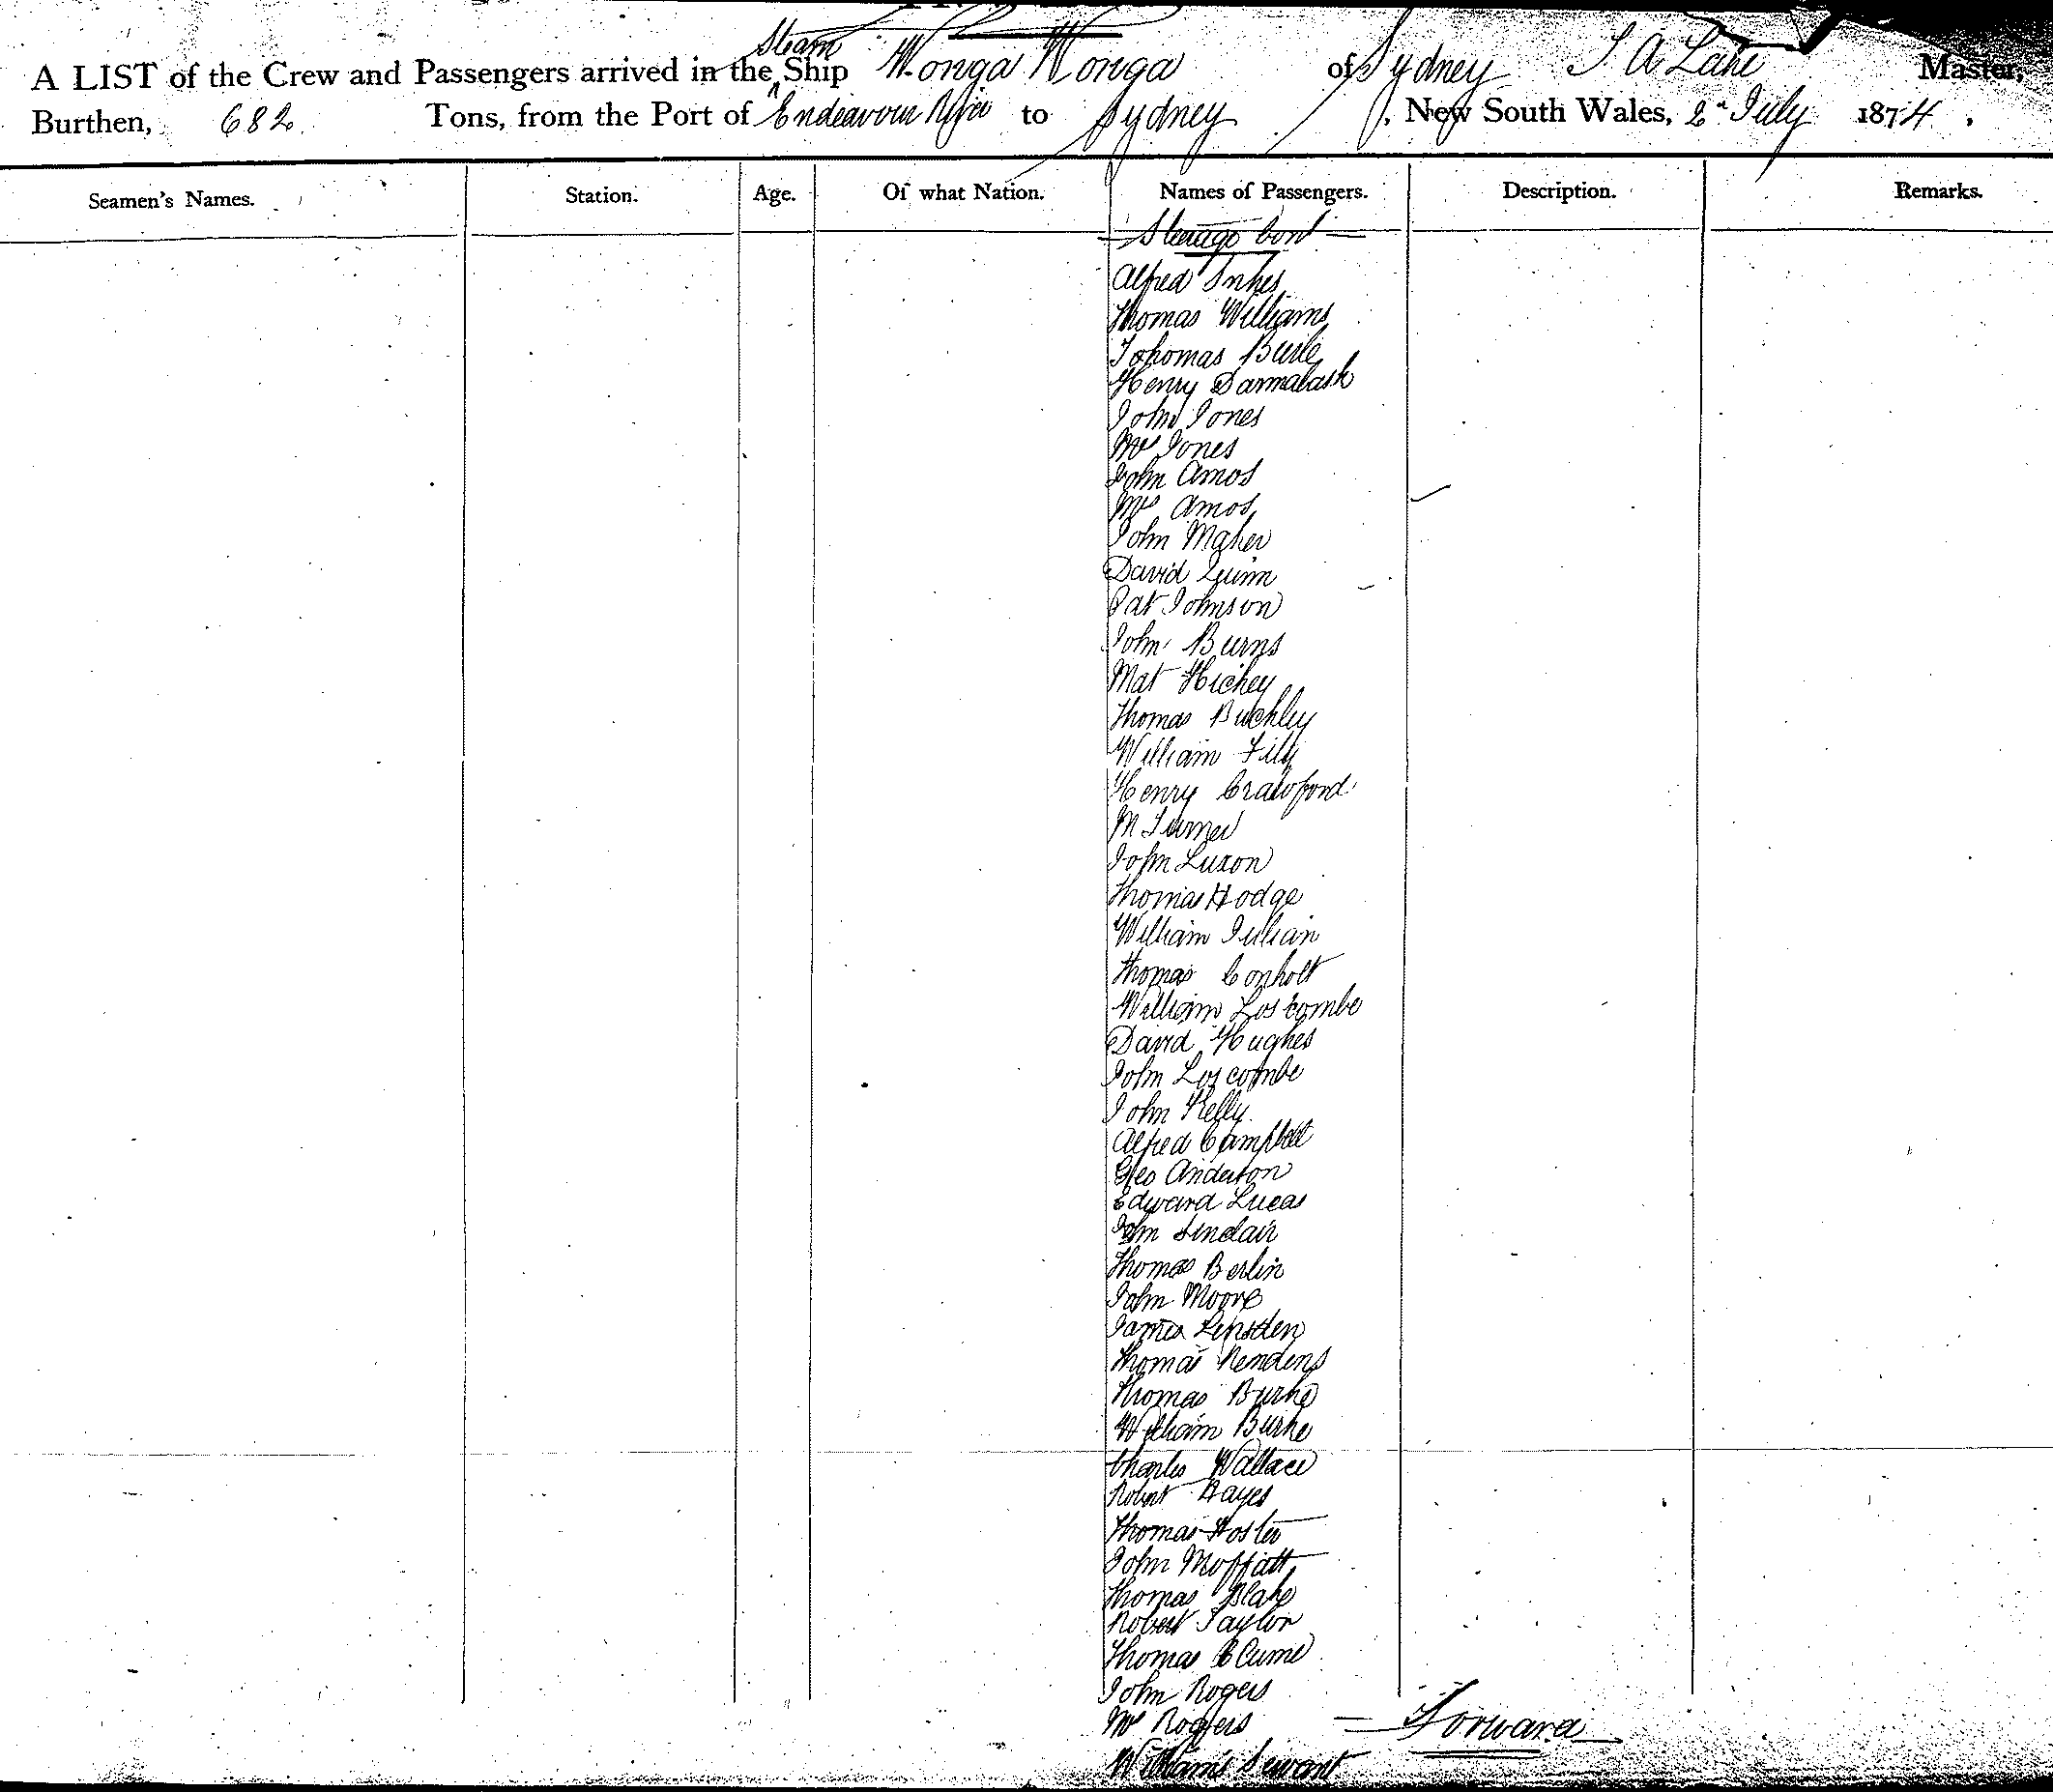 A LIST of the Crew and Passengers arrived in the Steam Ship Wonga Wonga of Sydney J A Lake Master,
Burthen, 682 Tons, from the Port of Endeavour River to Sydney, New South Wales, 2d July 1874,
Seamen's Names. Station. Age. Of what Nation. Names of Passengers. Description. Remarks.
Steerage Cont
Alfred
Thomas Williams
Burle
Henry
John Jones
Mrs Jones
John Amos
Mrs Amos
John Maher
David Quinn
Pat Johnson
John Burns
Mat Hickey
Thomas Buckley
William Filly
Henry Crawford
M Turner
John Luxon
Thomas Hodge
William Julian
Thomas Conholt
William Loscombe
David Hughes
John Loscombe
John Kelly
Alfred Campbell
Geo Anderson
Edward Lucas
John Sinclair
Thomas Berlin
John Moore
James
Thomas
Thomas Burke
William Burke
Charles Wallace
Robert Hayes
Thomas Foster
John Moffatt
Thomas Blake
Robert Taylor
Thomas
John Rogers
Mrs Rogers
Forward
William